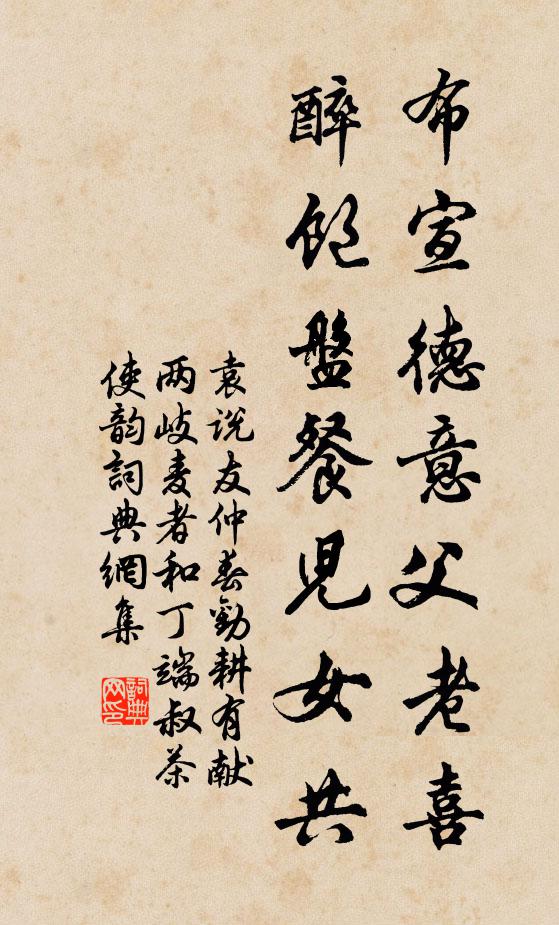 布宣德意父老喜
醉飽盤餐兒女共
袁说友仲春勸耕有献
两岐麦者和丁端叔茶
使韵詞典網集
詞典
网印